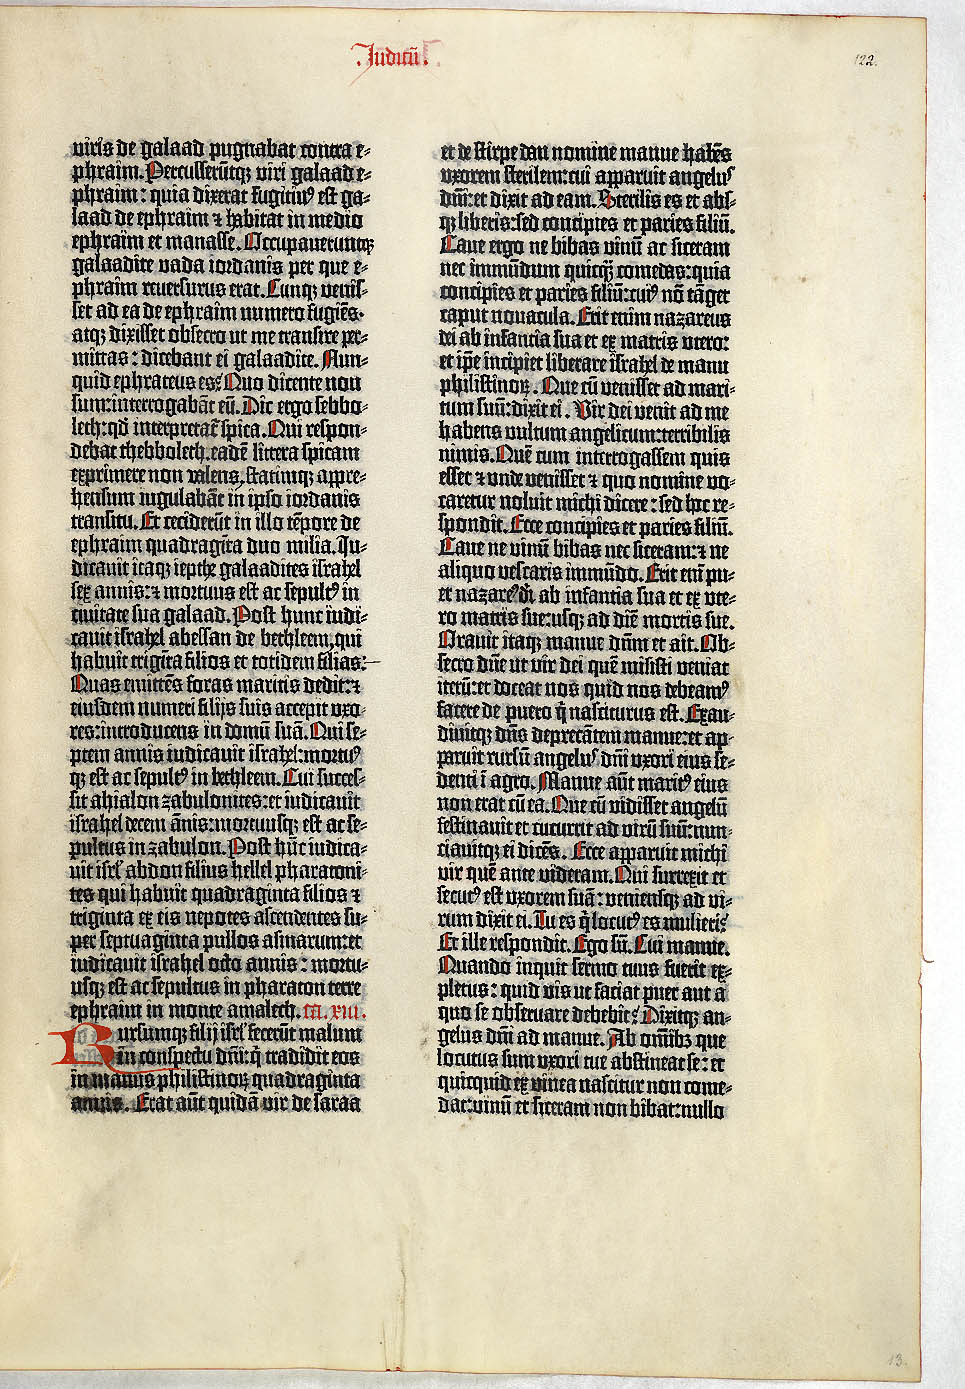 .Judicū.
122.
viris de galaad pugnabat contra e-
phraim. Percusserūtq; viri galaad e-
phraim: quia dixerat fugitiu⁹ est ga-
laad de ephraim ⁊ habitat in medio
ephraim et manasse. Occupaueruntq;
galaadite vada iordanis per que e-
phraim reuersurus erat. Cunq; venis-
set ad ea de ephraim numero fugiēs.
atq; dixisset obsecro ut me transire per-
mittas: dicebant ei galaadite. Nun-
quid ephrateus es? Quo dicente non
sum: interrogabāt eū. Dic ergo sebbo-
lech: qd̄ interpretat̄ spica. Qui respon-
debat thebbolech. eadē littera spicam
exprimere non valens. statimq; appre-
hensum iugulabāt in ipso iordanis
transitu. Et ceciderūt in illo tēpore de
ephraim quadragīta duo milia. Ju-
dicauit itaq; iepthe galaadites israhel
sex annis: ⁊ mortuus est ac sepult⁹ in
ciuitate sua galaad. Post hunc iudi-
cauit israhel abessan de bethleem, qui
habuit trigīta filios et totidem filias:
Quas emittēs foras maritis dedit: ⁊
eiusdem numeri filijs suis accepit vxo-
res: introducens in domū suā. Qui se-
ptem annis iudicauit israhel: mortu⁹
q; est ac sepult⁹ in bethleem. Cui succes-
sit ahialon zabulonites: et iudicauit
israhel decem ānis: mortuusq; est ac se-
pultus in zabulon. Post hūc iudica-
uit isrl̄ abdon filius hellel pharatoni-
tes qui habuit quadraginta filios ⁊
triginta ex eis nepotes ascendentes su-
per septuaginta pullos asinarum: et
iudicauit israhel octo annis: mortu-
usq; est ac sepultus in pharaton terre
ephraim in monte amalech. ca. xiii.
Rursumq; filij isrl̄ fecerūt malum
in conspectu dn̄i: q̄ tradidit eos
in manus philistinor̄ quadraginta
annis. Erat aūt quidā vir de saraa
et de stirpe dan nomine manue habēs
vxorem sterilem: cui apparuit angelus
dn̄i: et dixit ad eam. Sterilis es et abs-
q; liberis: sed concipies et paries filiū.
Caue ergo ne bibas vinū ac siceram
nec immūdum quicq̄; comedas: quia
concipies et paries filiū: cui⁹ nō tāget
caput nouacula. Erit enim nazareus
dei ab infantia sua et ex matris vtero:
et ip̄e incipiet liberare israhel de manu
philistinor̄. Que cū venisset ad mari-
tum suū: dixit ei. Vir dei venit ad me
habens vultum angelicum: terribilis
nimis. Quē cum interrogassem quis
esset ⁊ vnde venisset ⁊ quo nomine vo-
caretur noluit michi dicere: sed hoc re-
spondit. Ecce concipies et paries filiū.
Caue ne vinū bibas nec siceram: ⁊ ne
aliquo vescaris immūdo. Erit enī pu-
er nazare⁹ dī ab infantia sua et ex vte-
ro matris sue: usq; ad diē mortis sue.
Orauit itaq; manue dn̄m et ait. Ob-
secro dn̄e ut vir dei quē misisti veniat
iterū: et doceat nos quid nos debeam⁹
facere de puero q̄ nasciturus est. Exau-
diuitq; dn̄s deprecātem manue: et ap-
paruit rursū angelus dn̄i vxori eius se-
denti ī agro. Manue aūt marit⁹ eius
non erat cū ea. Que cū vidisset angelū
festinauit et cucurrit ad virū suū: nun-
ciauitq; ei dicēs. Ecce apparuit michi
vir quē ante videram. Qui surrexit et
secut⁹ est vxorem suā: veniensq; ad vi-
rum dixit ei. Tu es q̄ locut⁹ es mulieri?
Et ille respondit. Ego sū. Cui manue.
Quando inquit sermo tuus fuerit ex-
pletus: quid vis ut faciat puer aut a
quo se obseruare debebit? Dixitq; an-
gelus dn̄i ad manue. Ab omīb; que
locutus sum vxori tue abstineat se: et
quicquid ex vinea nascitur non come-
dat: vinū et siceram non bibat: nullo
13.